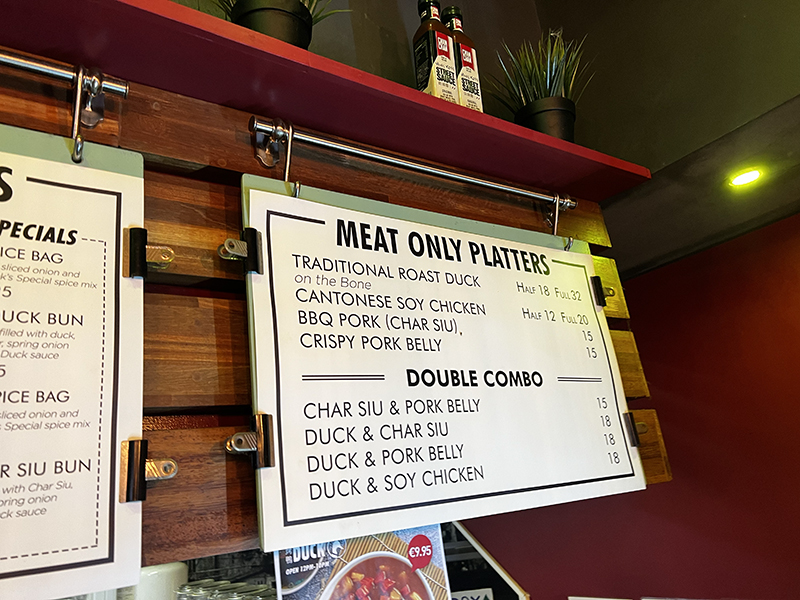 S
PECIALS
PICE BAG
sliced onion and
k's Special spice mix
95
DUCK BUN
filled with duck,
r, spring onion
Duck sauce
5
PICE BAG
sliced onion and
s Special spice mix
R SIU BUN
with Char Siu,
pring onion
ck sauce
MEAT ONLY PLATTERS
TRADITIONAL ROAST DUCK HALF 18 FULL 32
on the Bone
CANTONESE SOY CHICKEN HALF 12 FULL 20
BBQ PORK (CHAR SIU), 15
CRISPY PORK BELLY 15
DOUBLE COMBO
CHAR SIU & PORK BELLY 15
DUCK & CHAR SIU 18
DUCK & PORK BELLY 18
DUCK & SOY CHICKEN 18
STREET
SAUCE
STREET
SAUCE
DUCK
OPEN 12PM-10PM
€9.95